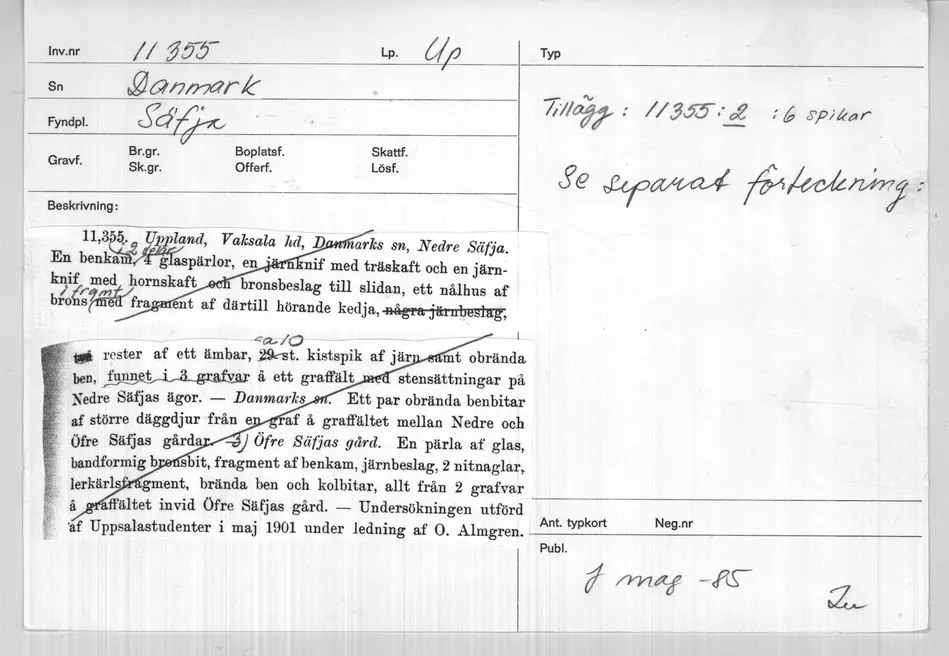 Inv.nr 11 355 Lp. Up
Sn Danmark
Fyndpl. Säfja
Gravf. Br.gr. Boplatsf. Skattf.
Sk.gr. Offerf. Lösf.
Beskrivning:
11,355. Uppland, Vaksala hd, Danmarks sn, Nedre Säfja.
i 2 delar
En benkam, 4 glaspärlor, en järnknif med träskaft och en järn-
knif med hornskaft och bronsbeslag till slidan, ett nålhus af
i fragmt
brons med fragment af därtill hörande kedja, några järnbeslag,
ca 10
två rester af ett ämbar, 29 st. kistspik af järn samt obrända
ben, funnet i 3 grafvar å ett graffält med stensättningar på
Nedre Säfjas ägor. — Danmarks sn. Ett par obrända benbitar
af större däggdjur från en graf å graffältet mellan Nedre och
Öfre Säfjas gårdar. 3) Öfre Säfjas gård. En pärla af glas,
bandformig bronsbit, fragment af benkam, järnbeslag, 2 nitnaglar,
lerkärlsfragment, brända ben och kolbitar, allt från 2 grafvar
å graffältet invid Öfre Säfjas gård. — Undersökningen utförd
af Uppsalastudenter i maj 1901 under ledning af O. Almgren.
Typ
Tillägg : 11355:2 : 6 spikar
Se separat förteckning:
Ant. typkort Neg.nr
Publ.
f mag -85